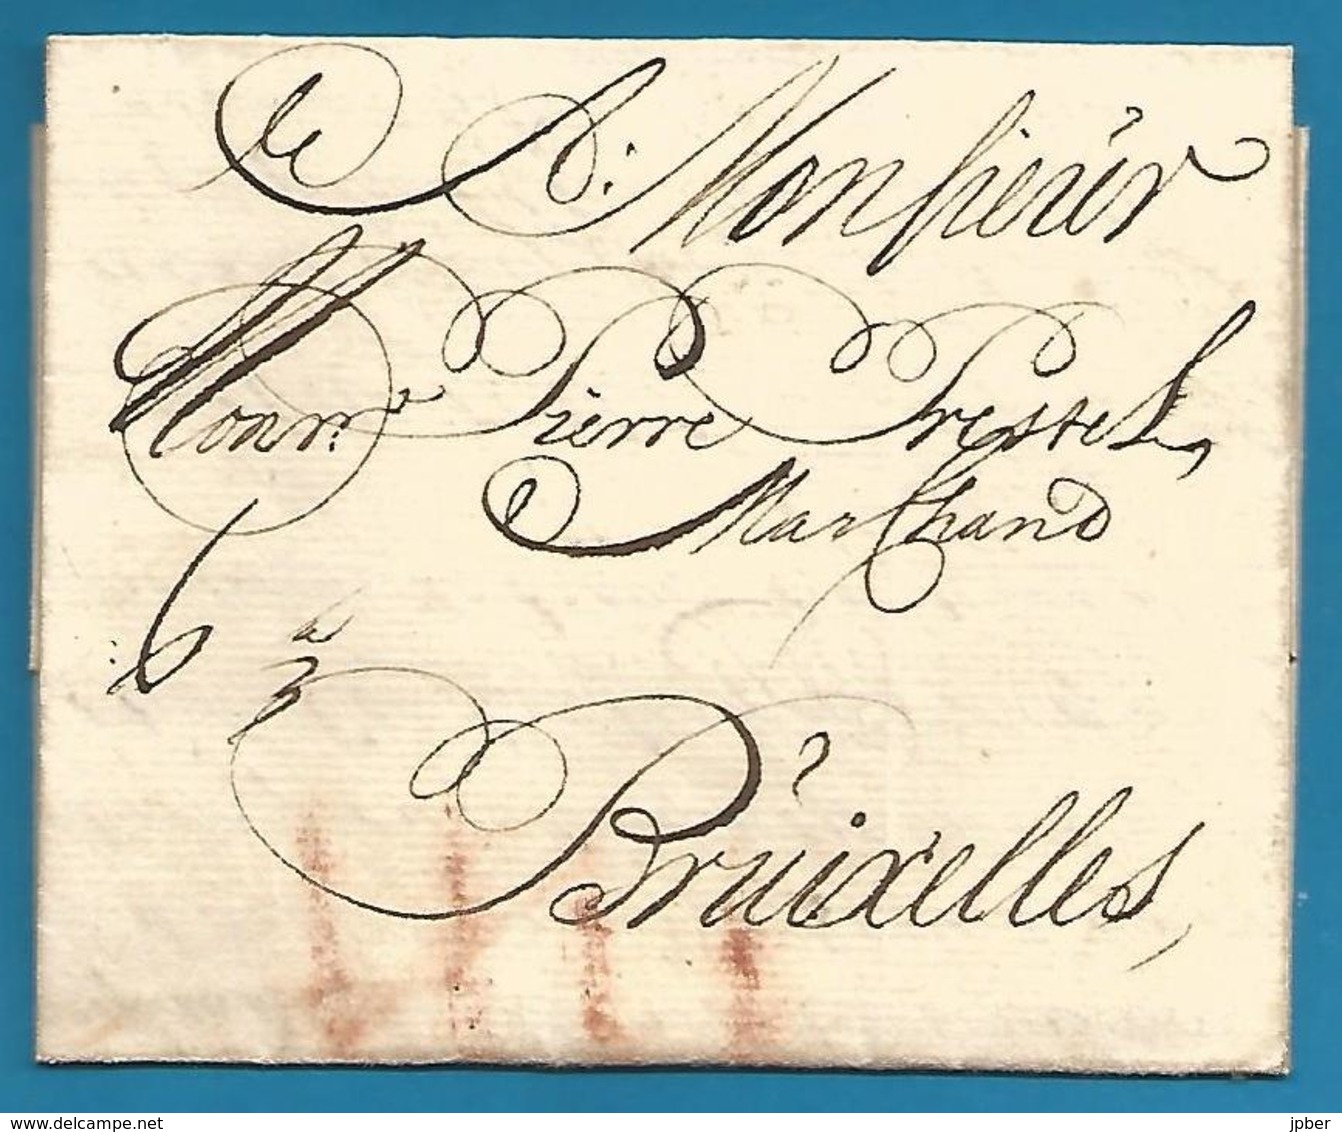 A Monsieur
Monsr. Pierre Pressel,
Marchand
6
à
Bruxelles,
www.delcampe.net
jpber